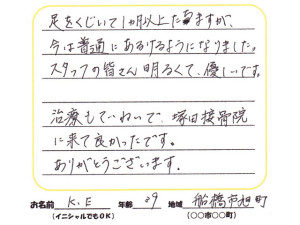 足をくじいて1ヵ月以上たちますが、
今は普通にあるけるようになりました。
スタッフの皆さん明るくて、優しいです。
治療もていねいで、塚田接骨院
に来て良かったです。
ありがとうございます。
お名前 K.E 年齢 29 地域 船橋市旭町
(イニシャルでもOK) (〇〇市〇〇町)